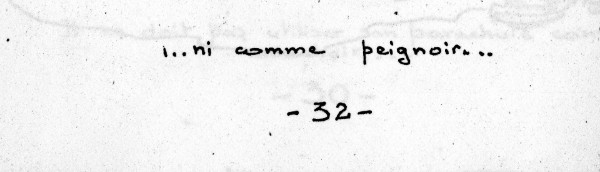 ...ni comme peignoir...
- 32 -